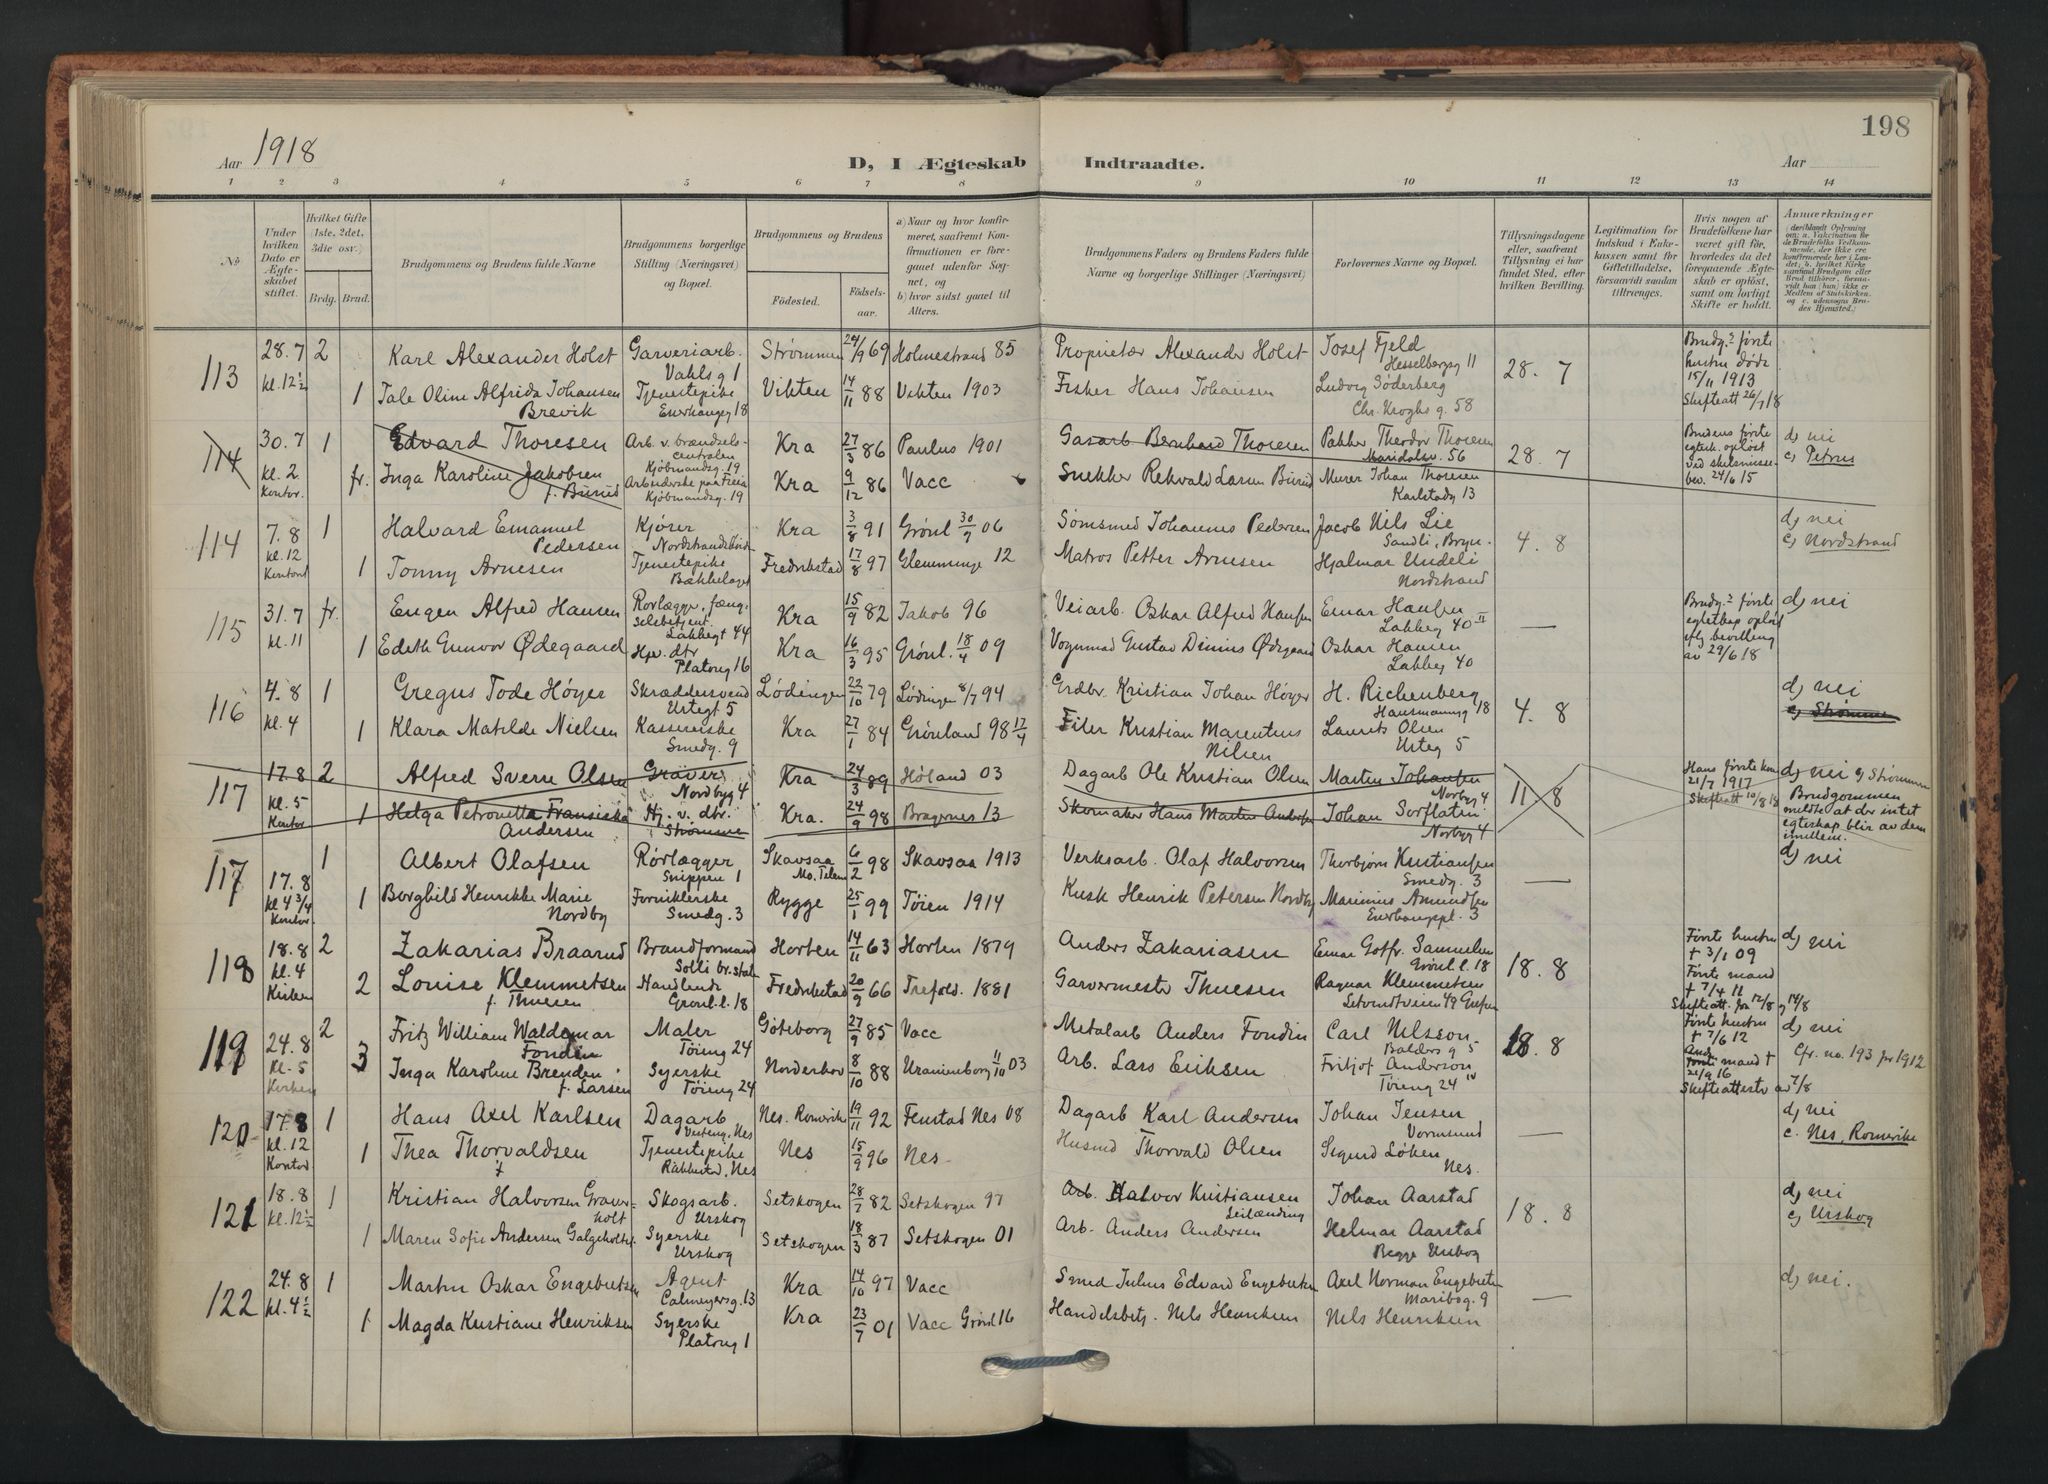 198
Aar 1918
D, I Ægteskab Indtraadte.
Aar
1 2 3 4 5 6 7 8 9 10 11 12 13 14
No
Under hvilken Dato er Ægteskabet stiftet.
Hvilket Gifte (1ste, 2det, 3die osv.)
Brdg. Brud.
Brudgommens og Brudens fulde Navne
Brudgommens borgerlige Stilling (Næringsvei) og Bopæl.
Brudgommens og Brudens
Fødested. Fødselsaar.
a) Naar og hvor konfirmeret, saafremt Konfirmationen er foregaaet udenfor Sognet, og b) hvor sidst gaaet til Alters.
Brudgommens Faders og Brudens Faders fulde Navne og borgerlige Stillinger (Næringsvei)
Forlovernes Navne og Bopæl.
Tillysningsdagene eller, saafremt Tillysning ei har fundet Sted, efter hvilken Bevilling.
Legitimation for Indskud i Enkekassen samt for Giftetilladelse, forsaavidt saadan tiltrænges.
Hvis nogen af Brudefolkene har været gift før, hvorledes da det foregaaende Ægteskab er opløst, samt om lovligt Skifte er holdt.
Anmerkninger
113 28.7 2 Karl Alexander Holst Garveriarb. Strømmen 24/9 69 Holmestrand 85 Proprietær Alexander Holst Josef Fjeld 28. 7 Brudg.s første
kl. 12½ Vahls g 1 Hesselbergsg 11 hustru døde
1 Tale Oline Alfrida Johansen Tjenestepike Vikten 14/11 88 Vikten 1903 Fisker Hans Johansen Ludvig Söderberg 15/11 1913
Brevik Enerhaugg 18 Chr. Kroghs g. 58 Skifteatt 26/7 18
114 30.7 1 Edvard Thoresen Arb. v. brændsels- Kra 27/3 86 Paulus 1901 Gasarb Bernhard Thoresen Pakker Theodor Thoresen 28. 7 Brudens første d) nei
kl. 2 centralen Maridalsv. 56 egtesk. opløst c) Petrus
Kontor. Kjøbmandsg. 19 ved skilsmisse-
fr. Inga Karoline Jakobsen Arbeiderske paa Freia Kra 9/12 86 Vacc Snekker Rekvald Larsen Burud Murer Johan Thoresen bev. 24/6 15
f. Burud Kjøbmandsg. 19 Karlstadg 13
114 7.8 1 Halvard Emanuel Kjører Kra 3/8 91 Grønl 30/7 06 Sømsmed Johannes Pedersen Jacob Nils Lie 4. 8 d) nei
kl. 12 Pedersen Sandli, Bryn. c) Nordstrand
Kontort 1 Tonny Arnesen Tjenestepike Fredrikstad 17/8 97 Glemminge 12 Matros Petter Arnesen Hjalmar Undeli
Bækkelaget Nordstrand
115 31.7 fr. Eugen Alfred Hansen Rørlægger, fæng- Kra 15/9 82 Jakob 96 Veiarb. Oskar Alfred Hansen Einar Hansen — Brudg.s første d) nei
kl. 11 selsbetjent Lakkegt 44 Lakkeg 40 II egteskap opløst
1 Edith Gunvor Ødegaard Hpv. dtr Kra 16/3 95 Grønl. 18/4 09 Vognmad Gustav Dinius Ødegaard Oskar Hansen eflg bevilling
Platoug 16 Lakkeg 40 av 29/6 18
116 4.8 1 Gregus Tode Høyer Skræddersvend Lødingen 22/10 79 Lødingen 8/7 94 Grdbr. Kristian Johan Høyer H. Richenberg 4. 8 d) nei
kl. 4 Urtegt 5 Hausmannsg 18 c) Strømmen
1 Klara Matilde Nielsen Kassererske Kra 27/1 84 Grønland 98 17/4 Filer Kristian Marentius Laurits Olsen
Smedg. 9 Nilsen Urteg 5
117 17.8 2 Alfred Sverre Olsen Graver Kra 24/3 89 Høland 03 Dagarb Ole Kristian Olsen Martin Johansen 11. 8 Hans første kone d) nei c) Strømmen
kl. 5 Nordbyg 4 Norbyg 4 21/7 1917 Brudgommen
Kontor 1 Helga Petronella Fransiska Hj. v. dtr. Kra. 24/9 98 Bragernes 13 Skomaker Hans Martin Andersen Johan Sorflaten Skifteatt 10/8 18 meldte at der intet
Andersen Strømmen Norbyg 4 egteskap blir av dem imellem.
117 17.8 1 Albert Olafsen Rørlægger Skavsaa 6/2 98 Skavsaa 1913 Verksarb. Olaf Halvorsen Thorbjørn Kristiansen — d) nei
kl 4 3/4 Snippen 1 Mo. Telem Smedg. 3
Kontor. 1 Borghild Henrikke Marie Forniklerske Rygge 25/1 99 Tøien 1914 Kusk Henrik Petersen Nordby Marinius Amundsen
Nordby Smedg. 3 Enerhaugpl. 3
118 18.8 2 Zakarias Braarud Brandformand Horten 14/11 63 Horten 1879 Anders Zakariasen Einar Gotfr. Samuelsen 18. 8 Første hustru d) nei
kl. 4 Solli br.stat Grønl. l. 18 † 3/1 09
Kirken 2 Louise Klemmetsen Handlende Fredrikstad 20/9 66 Trefold. 1881 Garvermester Thuesen Ragnar Klemmetsen Første mand † 7/4 11
f. Thuesen Grønl. l. 18 49 Grefsen Skifteatt. fra 12/8 og 14/8
119 24.8 2 Fritz William Waldemar Maler Göteborg 27/9 85 Vacc Metalarb Anders Fondin Carl Nilsson 18. 8 Første hustru d) nei
kl. 5 Fondin Tøieng 24 Balders g 5 † 7/6 12 Cfr. no. 193 for 1912
Kirken 3 Inga Karoline Brenden Syerske Norderhov 8/10 88 Uranienborg 11/10 03 Arb. Lars Eriksen Fritjof Anderson Andr. mand † 21/9 16
f. Larsen Tøieng 24 Tøieng 24 IV Skifteattester av 7/8
120 17.8 1 Hans Axel Karlsen Dagarb Nes. Romerike 19/11 92 Fenstad Nes 08 Dagarb Karl Andersen Johan Jensen — d) nei
kl. 12 Nes Vormsund c. Nes, Romerike
Kontor 1 Thea Thorvaldsen Tjenestepike Nes 15/9 96 Nes Husmd Thorvald Olsen Sigurd Løken
Nes Nes.
121 18.8 1 Kristian Halvorsen Graver- Skogsarb. Setskogen 28/7 82 Setskogen 97 Arb. Halvor Kristiansen Johan Aarstad 18. 8 d) nei
kl. 12½ holt Urskog Leilænding c) Urskog
1 Maren Sofie Andersen Galgeholtet Syerske Setskogen 18/3 87 Setskogen 01 Arb. Anders Andersen Helmar Aarstad
Urskog Begge Urskog
122 24.8 1 Martin Oskar Engebretsen Agent Kra 14/10 97 Vacc Smed Julius Edvard Engebretsen Axel Norman Engebretsen — d) nei.
kl. 4½ Calmeyersg. 13 Maribog. 9
1 Magda Kristiane Henriksen Syerske Kra 23/7 01 Vacc Grønl 16 Handelsbetj. Nils Henriksen Nils Henriksen
Platoug 1